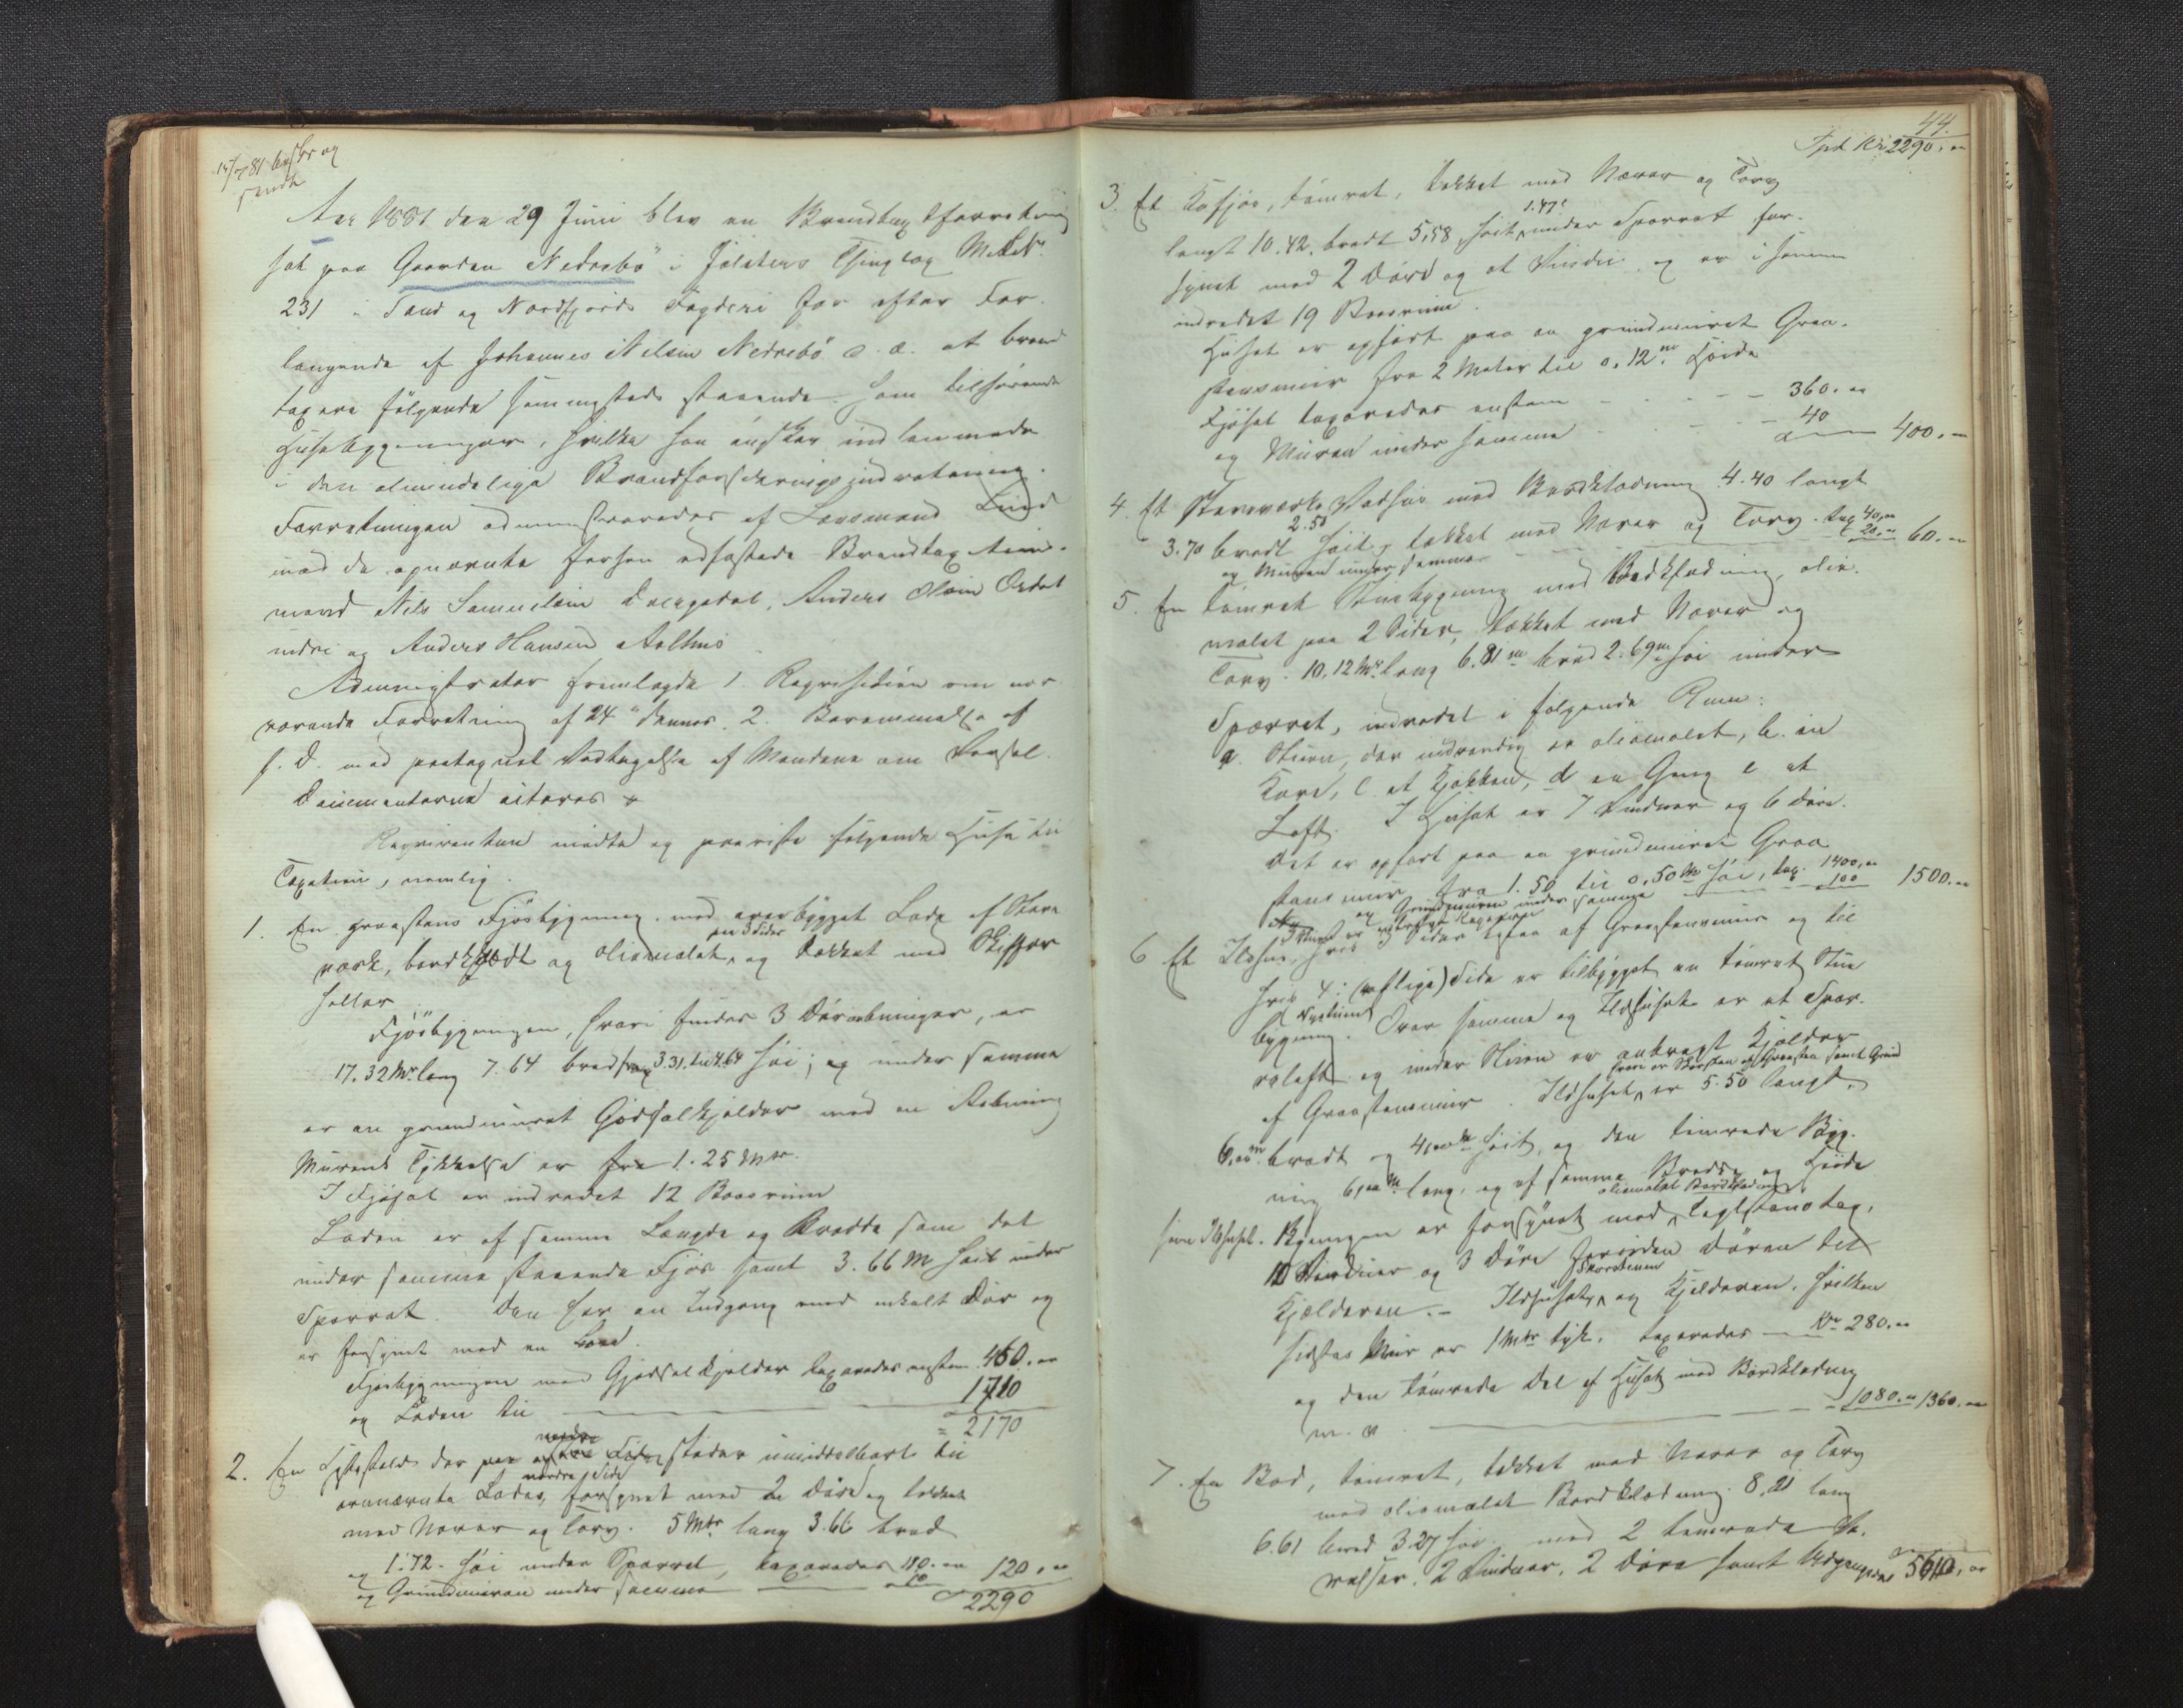 14/7 81 besk: og
sendt
Aar 1881 den 29 Juni blev en Brandtaxtforretning
holt paa Gaarden Nedrebø i Jølsters Thinglag M. L. Nr
231 i Sønd og Nordfjords Fogderi for efter For-
langende af Johannes Nilsen Nedrebø o. æ. at brand
taxere følgende sammesteds staaende ham tilhørende
Husebygninger, hvilke han ønsker indlemmede
i den almindelige Brandforsikringsindretning.
Forretningen administreredes af Lensmand Lind
med de opnævnte forhen edfæstede Brandtaxtmænd.
mænd Nils Samuelsen Dvergsdal, Anders Olsen Årdal
indre og Anders Hansen Aalhus
Administrator fremlagde 1. Reqvisition om nær
værende Forretning af 24de dennes 2. Berammelse af
s. D. med paategnet Vedtagelse af Mændene om Varsel.
Documenterne citeres
Reqvirenten mødte og paaviste følgende Huse til
Taxation, nemlig.
1. En graastens Fjøsbygning med overbygget Lade af Stave
værk, bordklædt og oliemalet paa 3 Sider og tækket med Skiffer
heller
Fjøsbygningen, hvori findes 3 Døraabninger, er
17.32 Mtr lang 7.64 bred fra 3.31 til 4.64 høi; og under samme
er en grundmuret Gjødselkjelder med en Aabning
Murens Tykkelse er fra 1.25 Mtr.
I Fjøset er indredet 12 Baasrum
Laden er af samme Længde og Bredde som det
under samme staaende Fjøs samt 3.66 M høit under
Sperret. Den har en Indgang med enkelt Dør og
er forsynet med en
Fjøsbygningen med Gjødselkjelder taxeredes enstem. 460.00
og Laden til 1710
= 2170
2. En Hestestald der støder umiddelbart til
nordre Side
ovennævnte Lades, forsynet med 2 Døre og tækket
med Næver og Torv. 5 Mtr lang 3.66 bred
og 1.72 høi under Sperret, taxeredes 110.00
og Grundmuren under samme 10 120.00
2290
44.
Tpt Kr 2290.00
3. Et Kufjøs, tømret, tækket med Næver og Torv
langt 10.42 bredt 5,58 høit 1.47 under Sperret for-
synet med 2 Døre og et Vindu og er i samme
indredet 19 Baasrum.
Huset er opført paa en grundmuret Graa-
stensmur fra 2 Meter til 0.12m Høide
Fjøset taxeredes enstem 360.00
og Muren under samme 40 400.00
4. Et Staveværks Vedhus med Bordklædning 4.40 langt
3.70 bredt 2.50 høit, tækket med Næver og Torv. tax 40,00
og Muren under samme 20.00 60.00
5. En tømret Stuebygning med Bordklædning, olie-
malet paa 2 Sider, tækket med Næver og
Torv. 10.12 Mtr lang 6.81m bred 2.69m høi under
Sperret, indredet i følgende Rum:
a. Stuen, der indvendig er oliemalet, b. en
Kove, c. et Kjøkken, d en Gang e et
Loft. I Huset er 7 Vinduer og 6 Døre.
Det er opført paa en grundmuret Graa
stensmur fra 1.50 til 0,50 M høi, tax. 1400,00
og Grundmuren under samme 100 1500.00
6 Et Ildhus, hvis 3 Sider bestaa af Graastensmur og til
hvis 4: (vestlige) Side er tilbygget en tømret Stue
bygning. Over samme og Ildhuset er et Sper-
reloft og under Stuen er anbragt Kjelder
af Graastensmur. Ildhuset er 5.50 langt,
hvori er Skorsten af Graasten samt Grue
6,00m bredt og 4,00 M høit, og den tømrede Byg-
ning 6,00 M lang, og af samme Bredde og Høide
som Ildhuset. Bygningen er forsynet med oliemalet Bordklædning teglstenstag,
10 Vinduer og 3 Døre foruden Døren til
Kjælderen. Ildhuset, Skorstenen og Kjelderen, hvilken
sidstes Mur er 1 Mtr tyk, taxeredes Kr 280.00
og den tømrede Del af Huset med Bordklædning
m. v. 1080.00 1360.00
7. En Bod, tømret, tækket med Næver og Torv
med oliemalet Bordklædning. 8,21 lang
6.61 bred 3.27 høi med 2 tømrede Væ-
relser. 2 Vinduer, 2 Døre samt Udgangsdør 5610,00